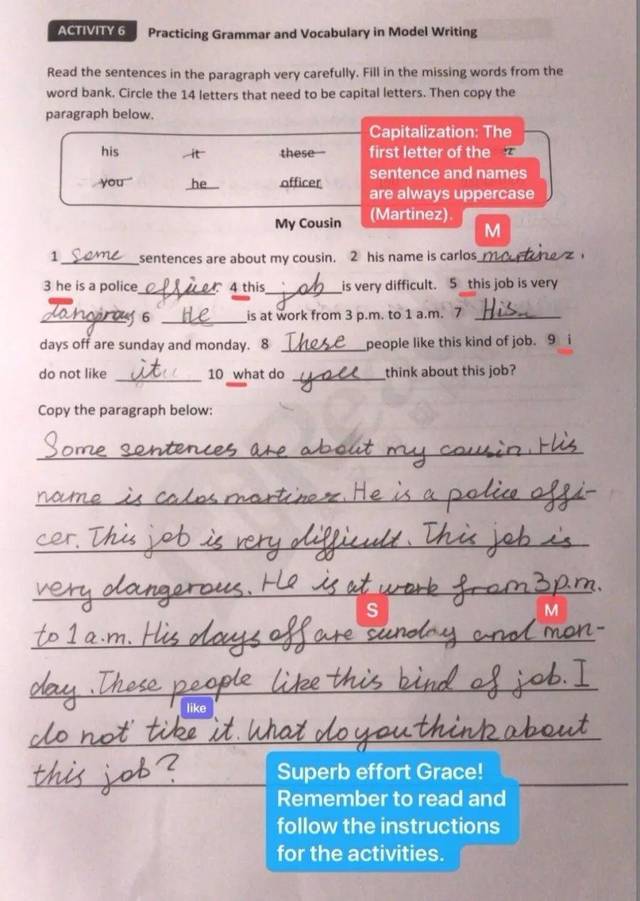 ACTIVITY 6 Practicing Grammar and Vocabulary in Model Writing
Read the sentences in the paragraph very carefully. Fill in the missing words from the
word bank. Circle the 14 letters that need to be capital letters. Then copy the
paragraph below.
his it these
you he officer
Capitalization: The
first letter of the
sentence and names
are always uppercase
(Martinez).
My Cousin
M
1 Some sentences are about my cousin. 2 his name is carlos martinez.
3 he is a police officer 4 this job is very difficult. 5 this job is very
6 He is at work from 3 p.m. to 1 a.m. 7 His
days off are sunday and monday. 8 These people like this kind of job. 9 i
do not like it 10 what do you think about this job?
Copy the paragraph below:
Some sentences are about my cousin. His
name is calos martinez. He is a police offi-
cer. This job is very difficult. This job is
very dangerous. He is at work from 3 p.m.
S M
to 1 a.m. His days off are sunday and mon-
day. These people like this kind of job. I
like
do not tike it. What do you think about
this job?
Superb effort Grace!
Remember to read and
follow the instructions
for the activities.